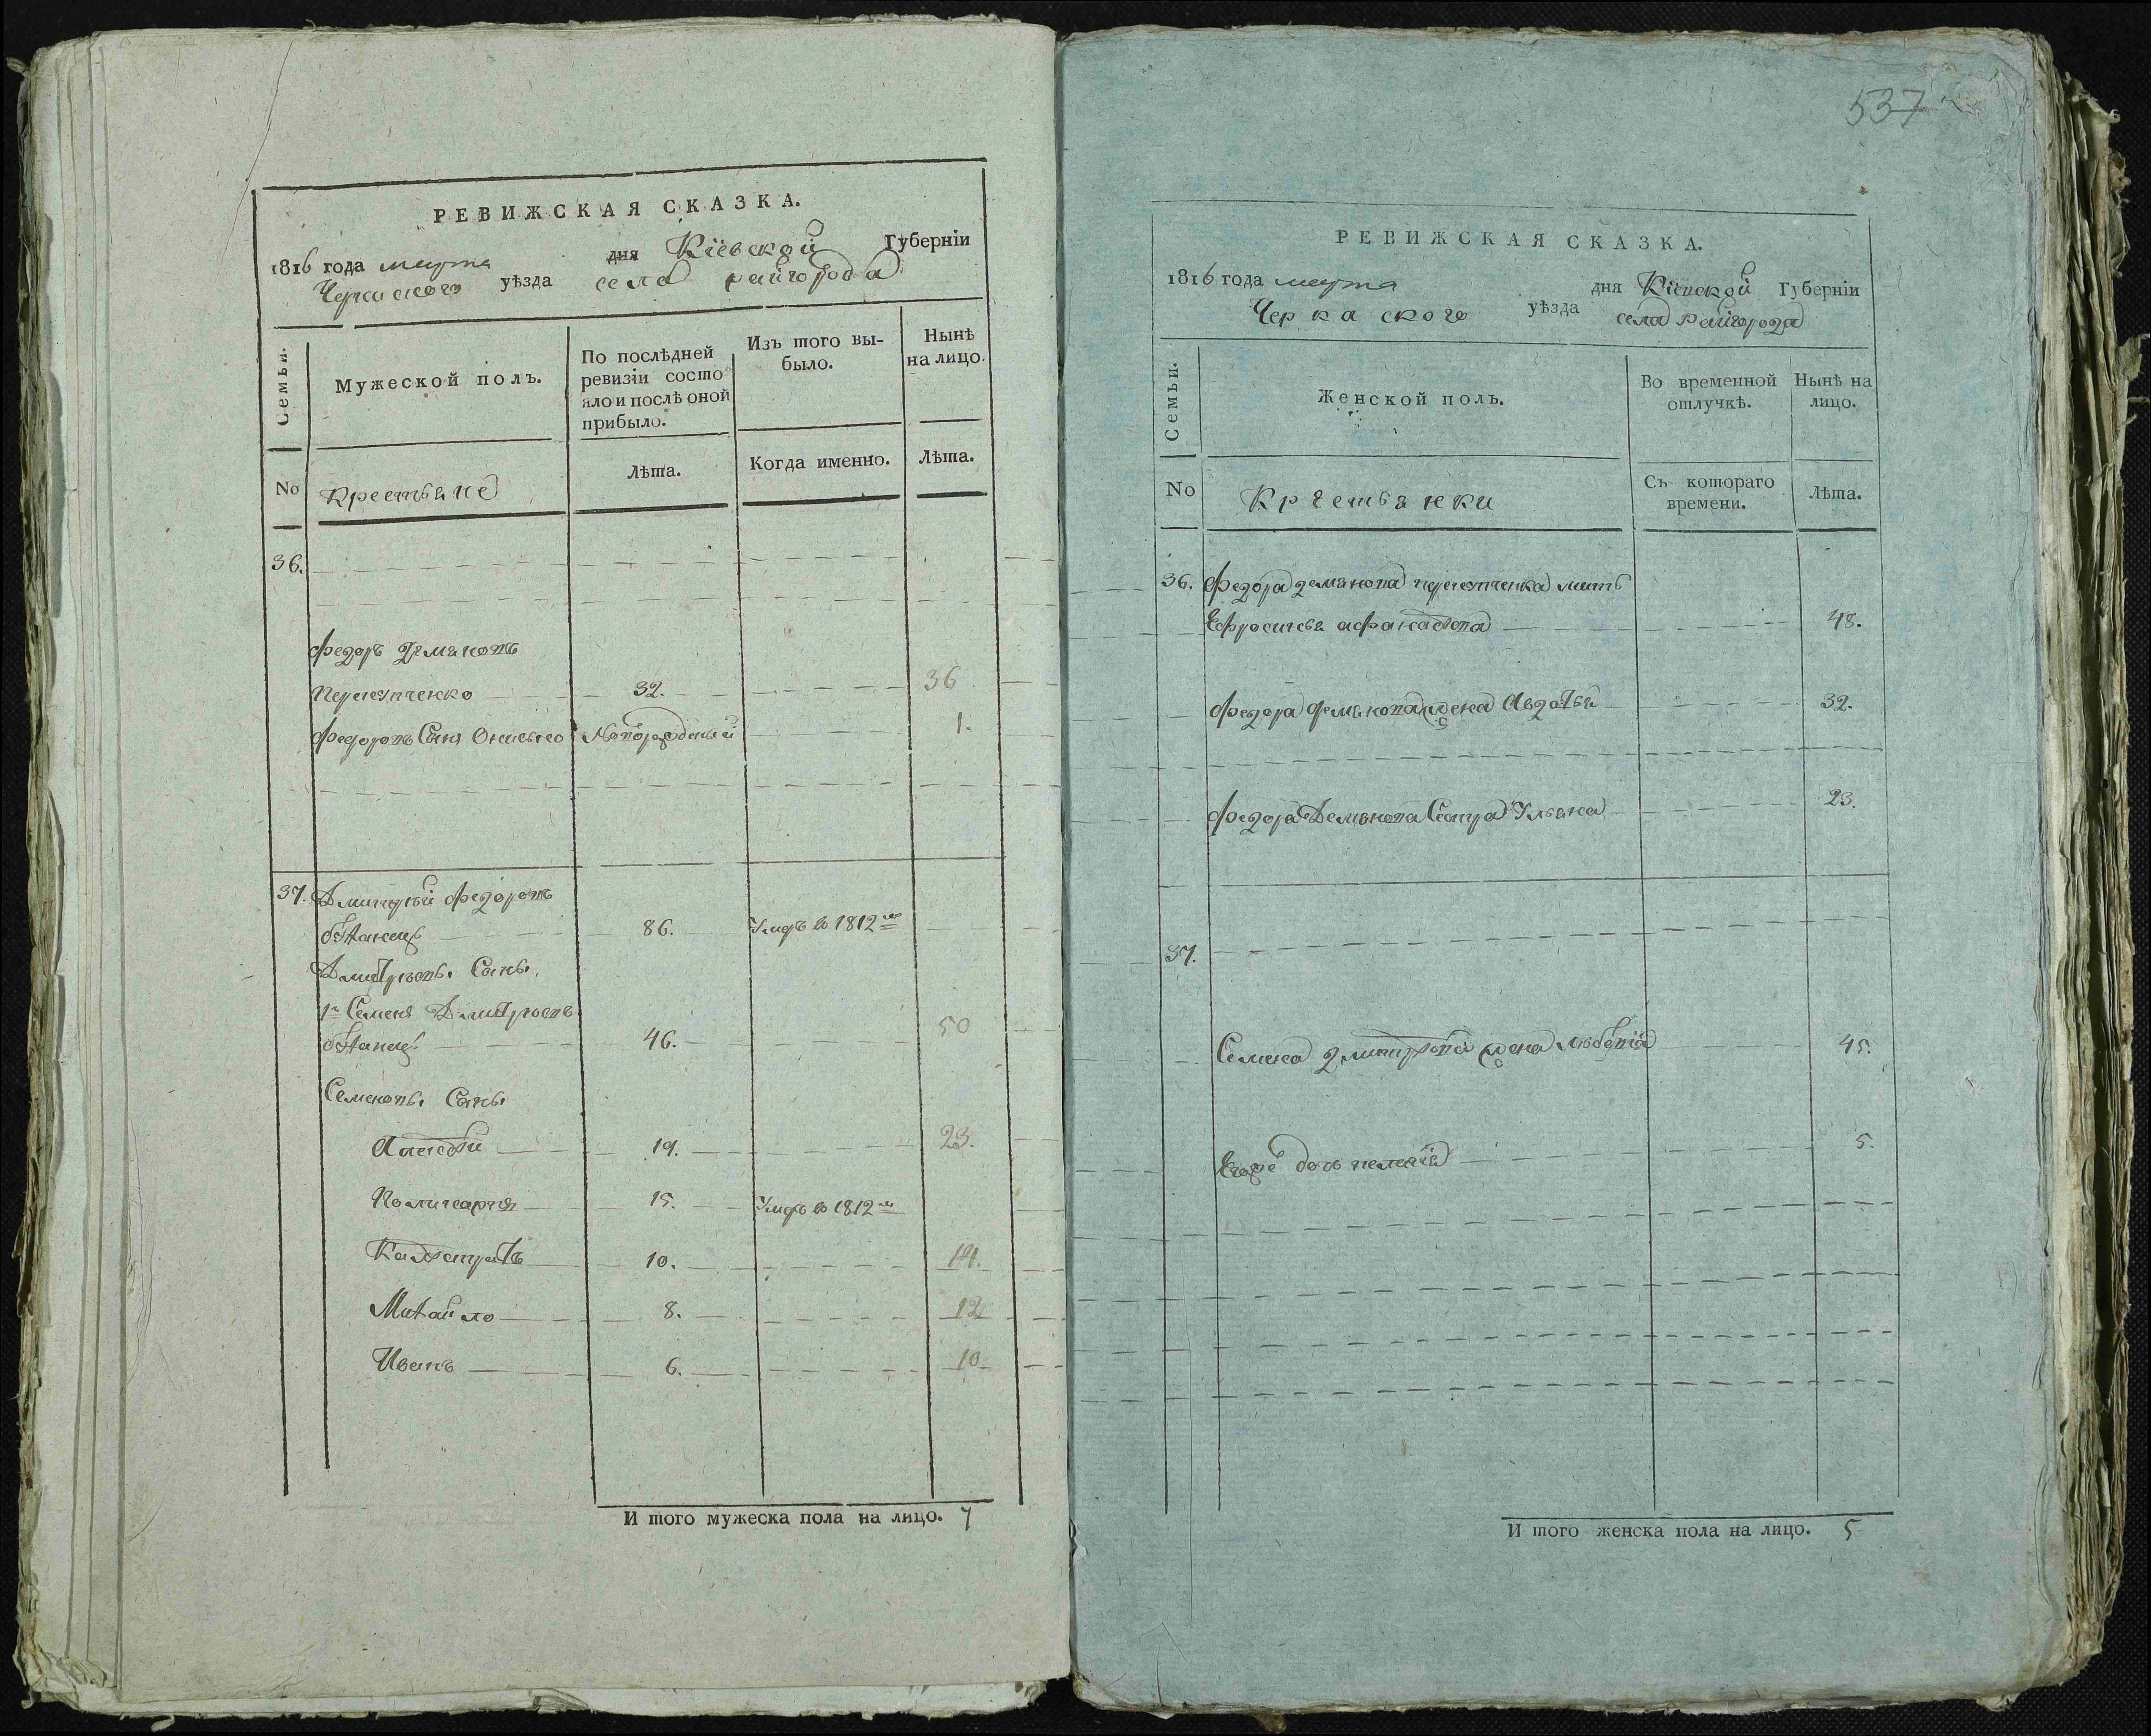 РЕВИЖСКАЯ СКАЗКА.
1816 года марта дня Кіевской Губерніи
Черкаского уѣзда села райгорода
Семьи.
Мужеской полъ.
По послѣдней
ревизіи состо
яло и послѣ оной
прибыло.
Изъ того вы-
было.
Нынѣ
на лицо.
No
Крестьяне
Лѣта.
Когда именно.
Лѣта.
36.
Федоръ Демяновъ
32. 36
Федоровъ Сынъ Новорожденный 1.
37. Дмитрий Федоровъ
86. Умръ в 1812
Дмитриевы Сыны
1й Семенъ Дмитриевъ
46. 50
Семеновы Сыны
Алексѣй 19. 23.
Поликарпъ 15. Умръ в 1812
10. 14.
Михайло 8. 12
Иванъ 6. 10
И того мужеска пола на лицо. 7
537
РЕВИЖСКАЯ СКАЗКА.
1816 года марта дня Кіевской Губерніи
Черкаского уѣзда села Райгорода
Семьи.
Женской полъ.
Во временной
отлучкѣ.
Нынѣ на
лицо.
No
Крестьянки
Съ котораго
времени.
Лѣта.
36. Федора Демянова мать
Ефросинья 48.
Федора Демянова жена Авдотья 32.
Федора Демянова Сестра Ульяна 23.
37.
Семена Дмитриева жена 45.
Его дочь 5.
И того женска пола на лицо. 5